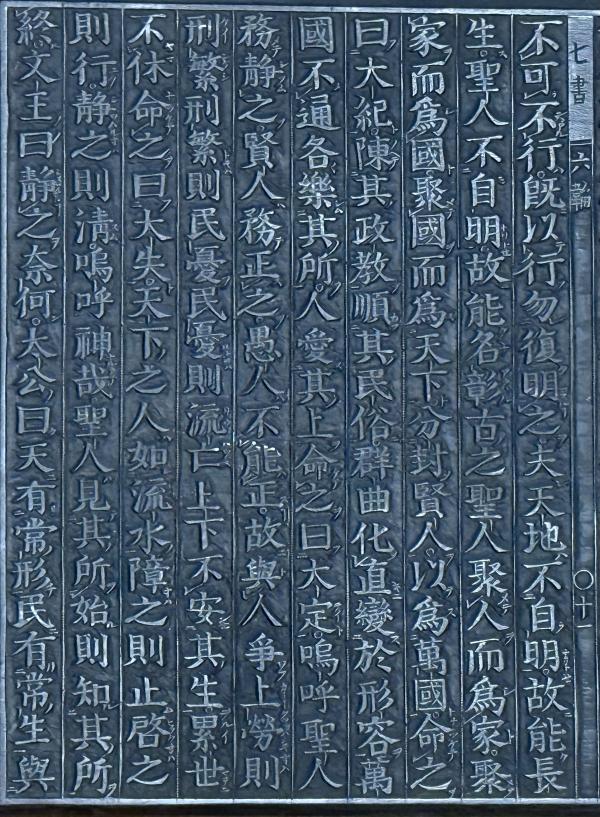 七書 六韜 〇十一
不可不行既以行勿復明之夫天地不自明故能長
生聖人不自明故能名彰古之聖人聚人而爲家聚
家而爲國聚國而爲天下分封賢人以爲萬國命之
曰大紀陳其政教順其民俗群曲化直變於形容萬
國不通各樂其所人愛其上命之曰大定嗚呼聖人
務靜之賢人務正之愚人不能正故與人爭上勞則
刑繁刑繁則民憂民憂則流亡上下不安其生累世
不休命之曰大失天下之人如流水障之則止啓之
則行靜之則淸嗚呼神哉聖人見其所始則知其所
終文王曰靜之奈何太公曰天有常形民有常生與